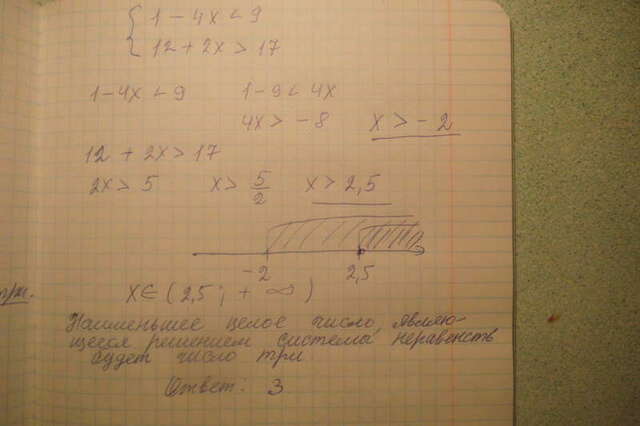 1 - 4x < 9
12 + 2x > 17
1 - 4x < 9 1 - 9 < 4x
4x > - 8 x > - 2
12 + 2x > 17
2x > 5 x > 5/2 x > 2,5
-2 2,5
x ∈ (2,5; + ∞)
Наименьшее целое число, являю-
щееся решением системы неравенств
будет число три
Ответ: 3